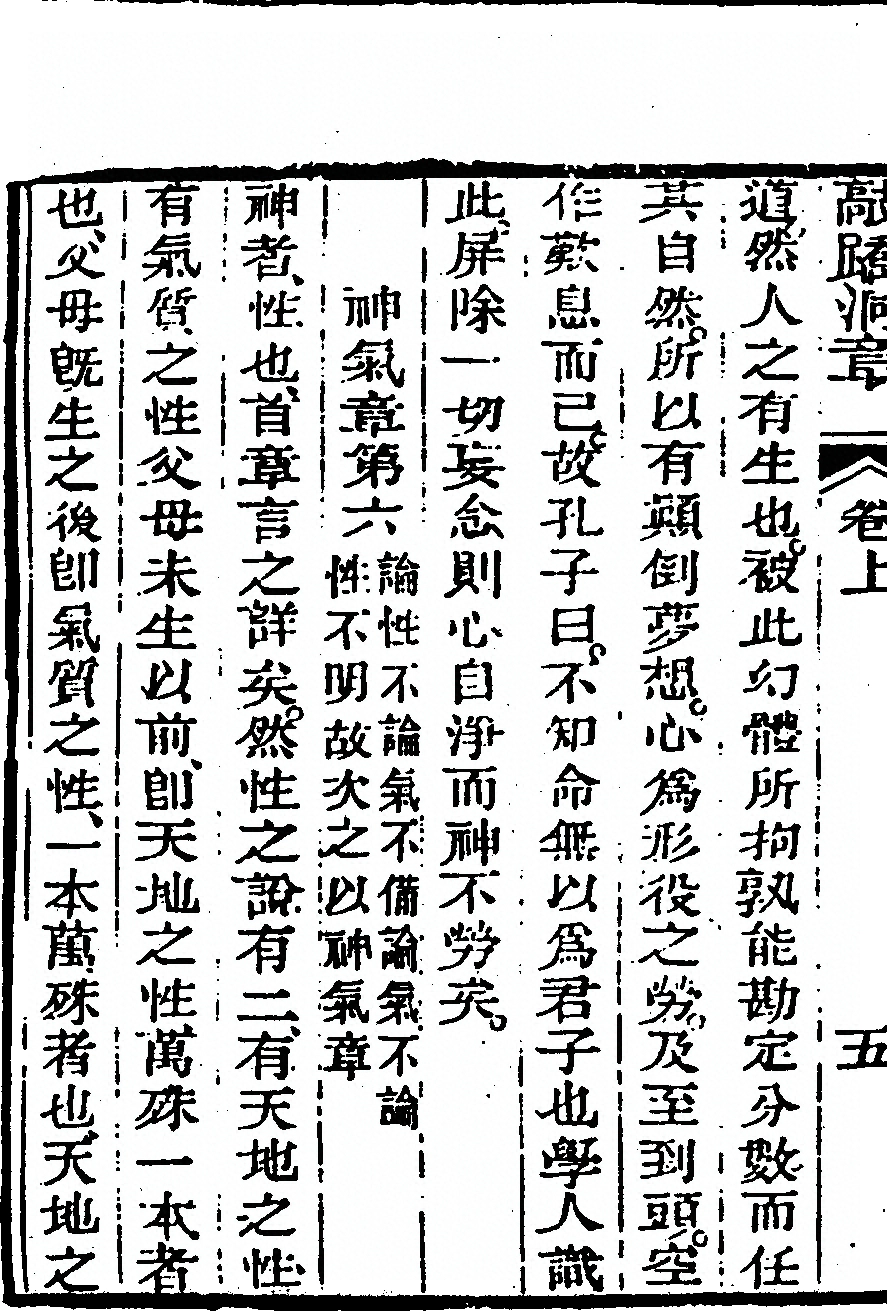 敲蹻洞章 卷上 五
道、然人之有生也。被此幻體所拘孰能勘定分數而任
其自然。所以有顛倒夢想。心爲形役之勞。及至到頭。空
作歎息而已。故孔子曰。不知命無以爲君子也學人識
此。屏除一切妄念則心自淨而神不勞矣。
神氣章第六
論性不論氣不備論氣不論
性不明故次之以神氣章
神者、性也、首章言之詳矣。然性之說有二、有天地之性
有氣質、之性父母未生以前、卽天地之性萬殊一本者
也、父母旣生之後卽氣質之性、一本萬殊者也、天地之